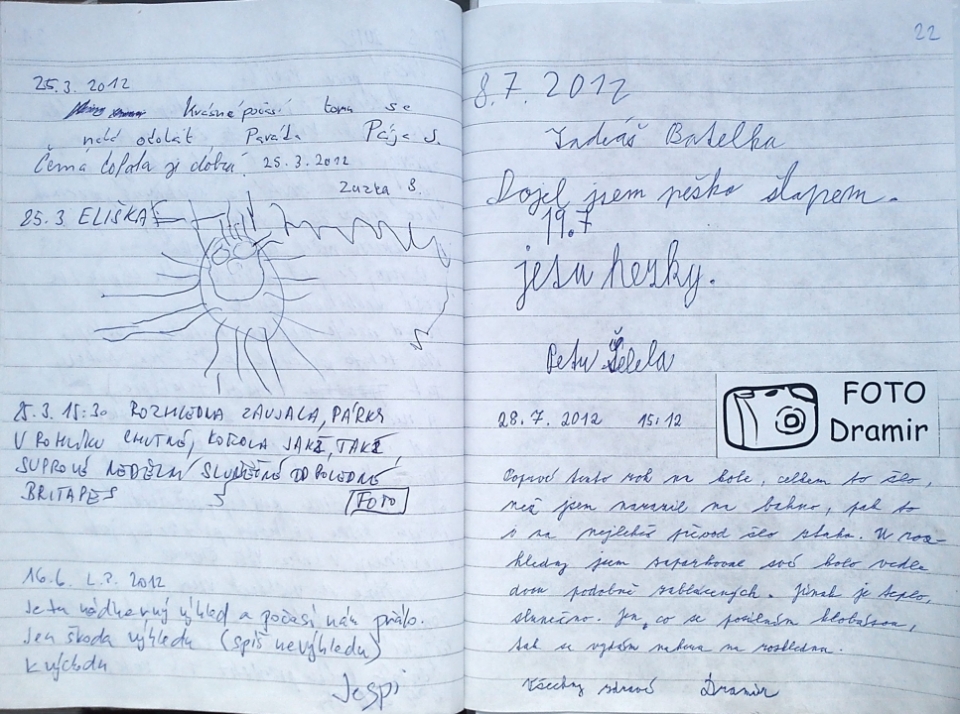 25.3. 2012
Krásné počasí tomu se
nedá odolat Paráda Pája S.
Černá čofola zi dobrá! 25.3.2012
Zuzka S.
25.3. ELIŠKA
25.3. 15:30 ROZHLEDNA ZAUJALA, PÁRKY
V ROHLÍKU CHUTNÉ, KOFOLA JAKŽ, TAKŽ,
SUPROVÉ NEDĚLNÍ SLUNEČNÉ ODPOLEDNE
BRITAPES FOTO
16.6. L.P. 2012
Je tu nádherný výhled a počasí nám přálo.
Jen škoda výhledu (spíš nevýhledu)
k východu
Jespi
22
8.7. 2012
Tadeáš Batelka
Dojel jsem pěško šlapem.
19.7
je tu hezky.
Petr
28.7. 2012 15:12
FOTO
Dramir
Poprvé tento rok na kole, celkem to šlo,
než jsem narazil na bahno, pak to
i na nejlehčí převod šlo ztuha. U roz-
hledny jsem zaparkoval své kolo vedle
dvou podobně zablácených. Jinak je teplo,
slunečno. Jen, co se posilním klobásou,
tak se vydám nahoru na rozhlednu.
Všechny zdraví Dramir